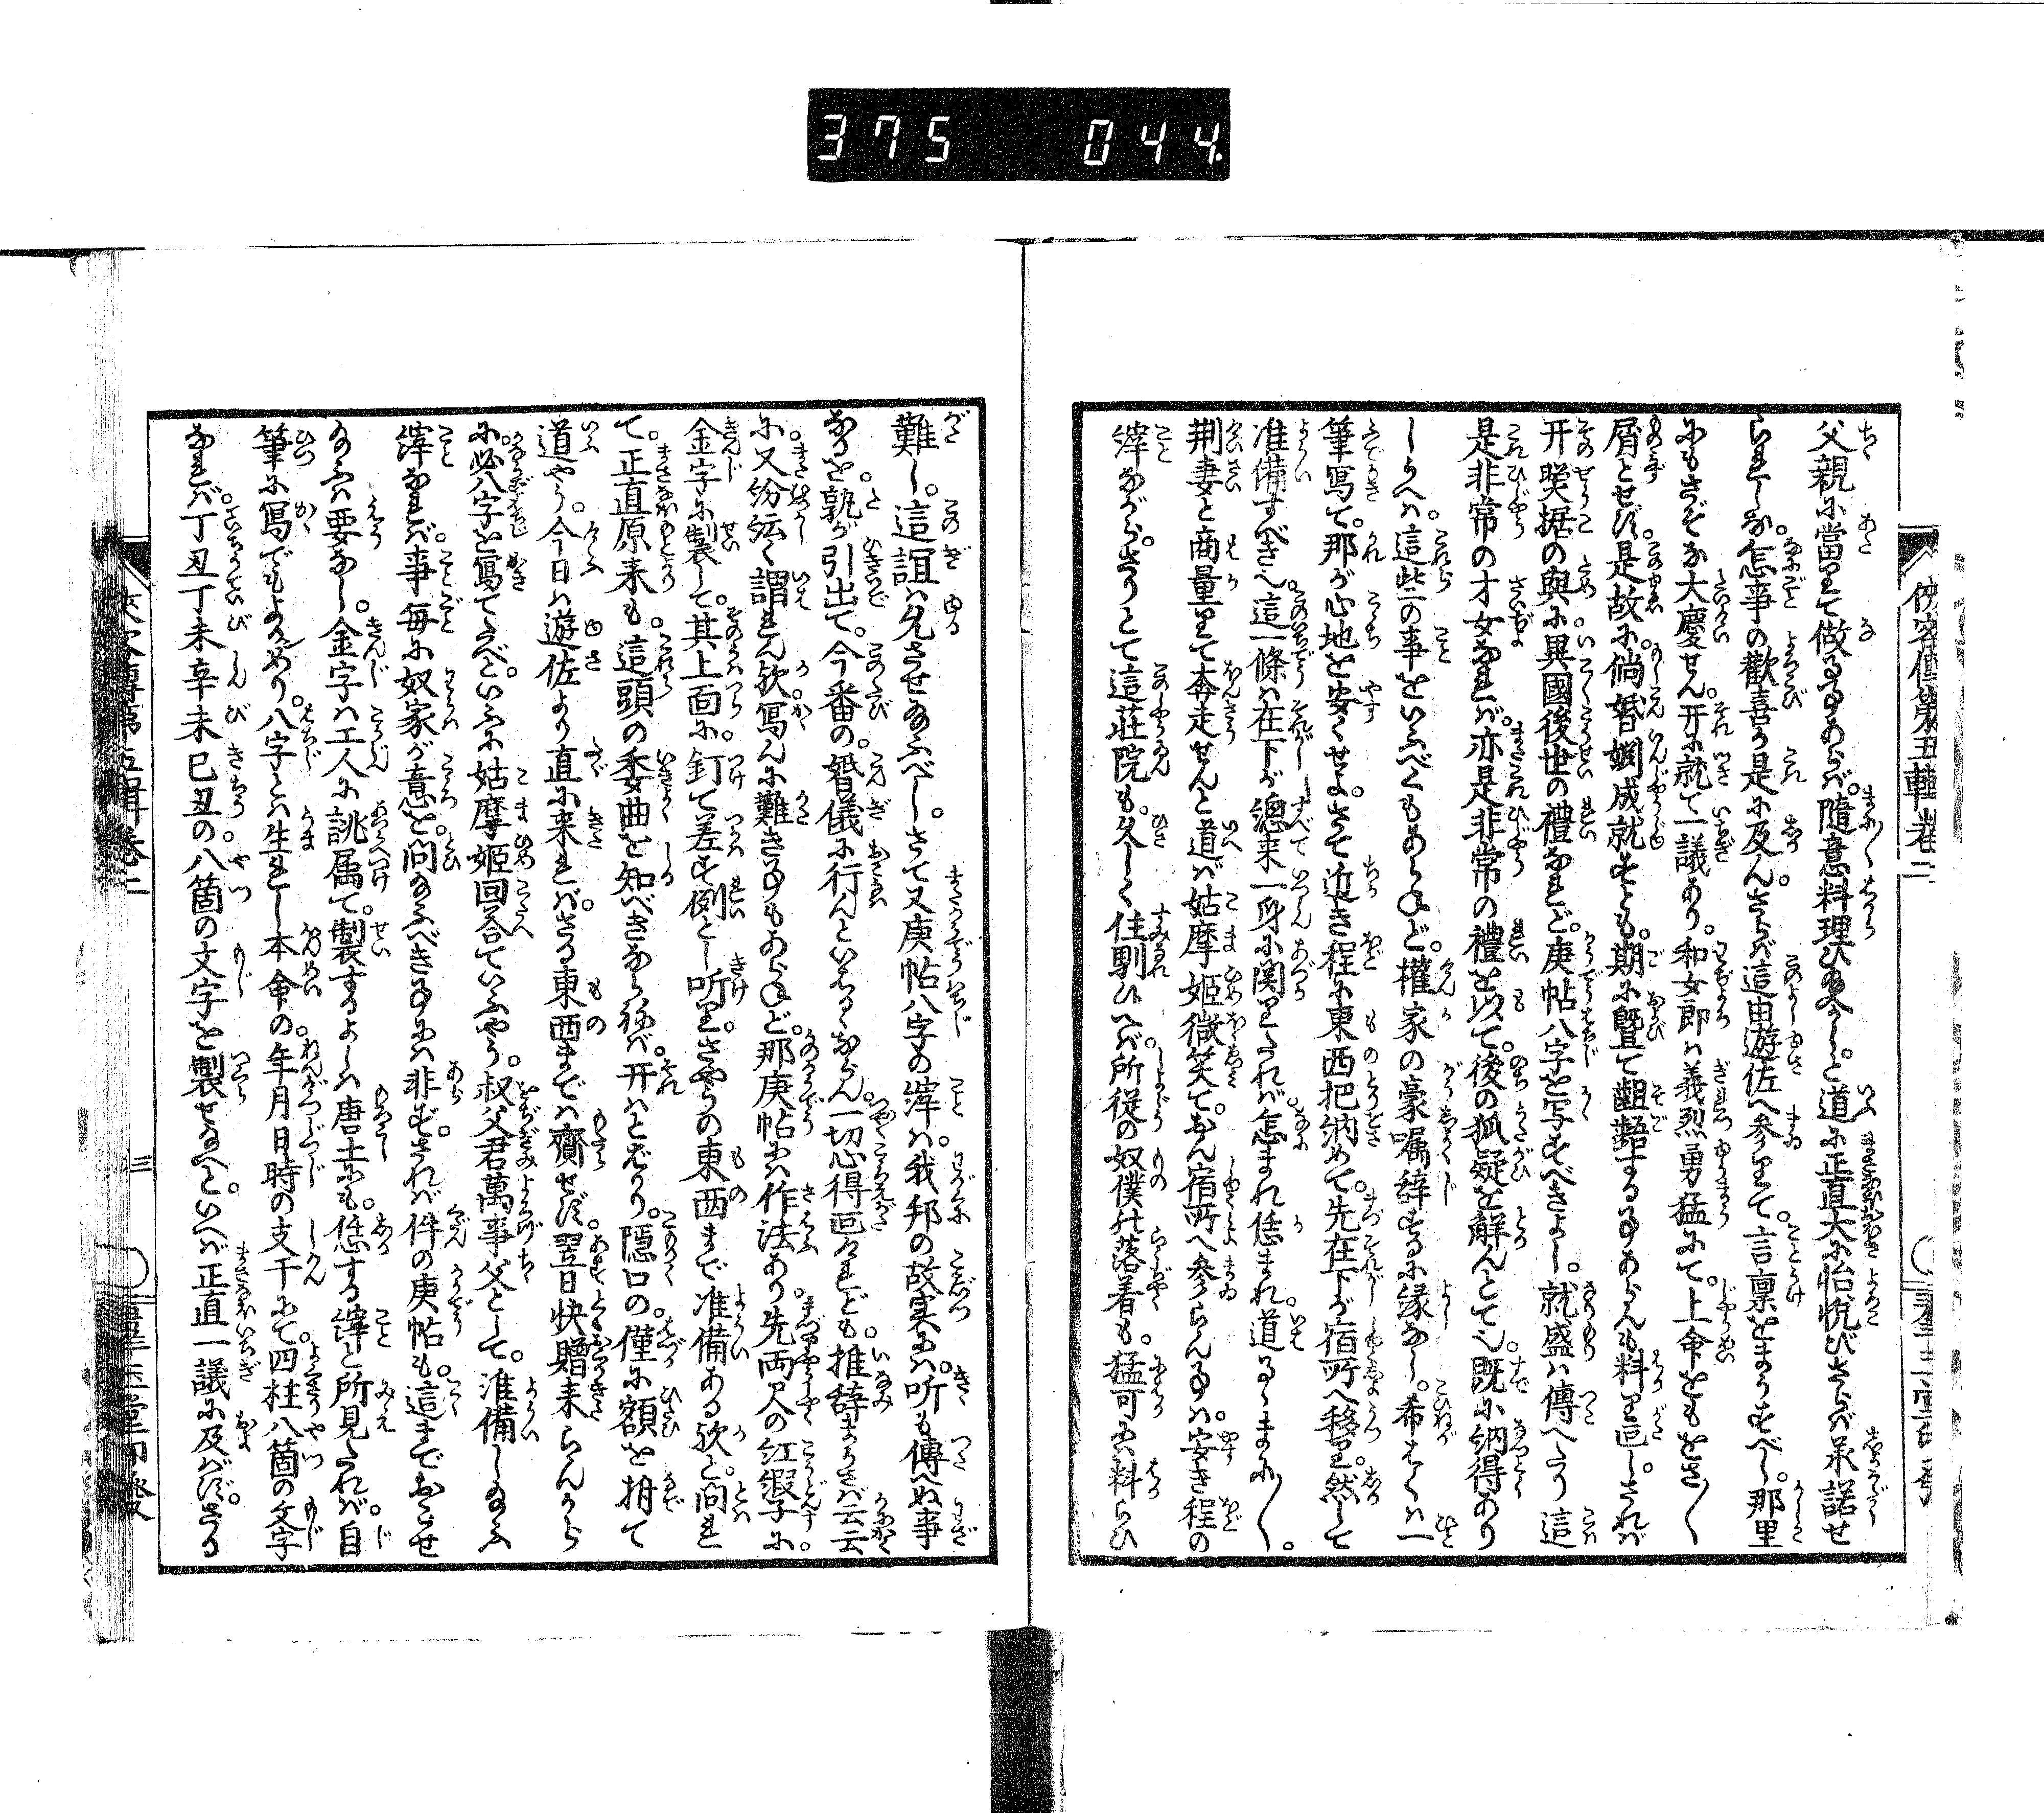 375 044
父親に當りて做る事あらば。隨意料理ひ給へかし。と道に正直大に怡悦びさらば承諾せ
られしな。怎事の歡喜か是に及ん。さらば這由遊佐へ参りて。言禀をまうすべし。那里
にもさぞな大慶せん。开に就て一議あり。和女郎は義烈勇猛にて。上命をもをさ〳〵
屑とせず。是故に倘婚姻成就すとも。期に曁て齟齬する事あらんも料り叵し。されば
开照据の與に異國後世の禮なれど。庚帖八字を写すべきよし。就盛は傳へたり。這
是非常の才女なれば。亦是非常の禮を以て。後の狐疑を觧んとて也。既に納得あり
しうへは。這些の事をいふべくもあらねど。權家の豪嘱辞するに縁なし。希くは一
筆寫て。那が心地を安くせよ。さて近き程に東西把納めて。先在下が宿所へ移りね。然して
准備すべき也。這一條は在下が總来一身に関りたれば。怎まれ恁まれ。道るゝまに〳〵。
荆妻と商量りて奔走せんと道ば姑摩姫微笑て。おん宿所へ参らん事は。安き程の
縡ながら。さりとて這荘院も。久しく住馴ひへば所從の奴僕の落着も。猛可には料らひ
難し。這誼は免させ給ふべし。さて又庚帖八字の縡は。我邦の故実には。听も傳へぬ事
なるを。孰が引出て。今番の。婚儀に行んといはるゝならん。一切心得叵けれども。推辞まうさば云云
に。又紛紜く謂れん歟。寫んに難き事もあらねど。那庚帖には作法あり。先両尺の紅緞子に。
金字に製して。其上面に。釘て差す例とし听り。さやうの東西まで准備ある歟。と問れ
て。正直原来も。這頭の委曲を知べきならねば。开はとばかり。隱口の僅に額を拊て
道やう。今日は遊佐より直に来れば。さる東西までは齎せず。翌日快贈来らんから
に。必八字を寫てたべ。といふに姑摩姫回答ていふやう。叔父君萬事父として。准備し給ふ
縡なれば。事毎に奴家が意を問給ふべき事には非ず。されば件の庚帖も。這までおこせ
給ふは要なし。金字は工人に誂属て。製するよしは唐土にも。恁する縡と所見たれば。自
筆に寫でもよかめり。八字とは生れし本命の。年月日時の支干にて。四柱八箇の文字
なれば。丁丑丁未辛未己丑の。八箇の文字を製せ給へ。といへば正直一議に及ばず。さる